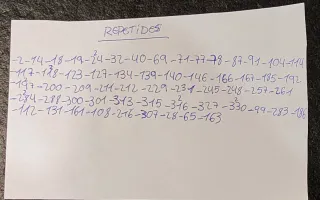 REPETIDES
-2-14-18-19-24-32-40-69-71-77-78-87-91-104-114
-117-118-123-127-134-139-140-146-166-167-185-192
-197-200-209-211-212-229-231-245-248-257-261
-284-288-300-301-313-315-316-327-330-99-283-186
-112-131-161-108-216-307-28-65-163